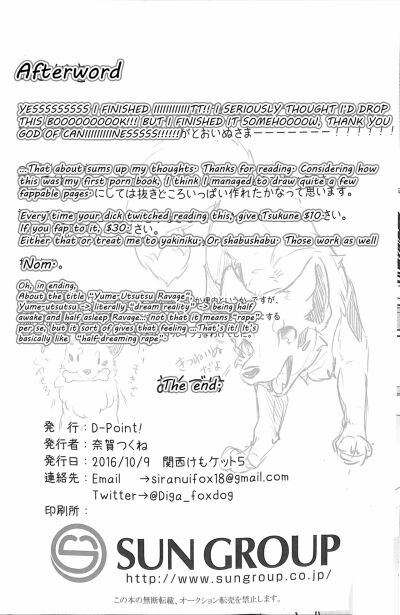 Afterword
YESSSSSSSSS I FINISHED IIIIIIIIIIIITT!! I SERIOUSLY THOUGHT I'D DROP
THIS BOOOOOOOOK!!! BUT I FINISHED IT SOMEHOOOOW, THANK YOU
GOD OF CANIIIIIIIIINESSSSS!!!!!!がとおいぬさまーーーーーーー!!!!!!
...That about sums up my thoughts. Thanks for reading. Considering how
this was my first porn book, I think I managed to draw quite a few
fappable pages にしては抜きどころいっぱい作れたかなって思います。
Every time your dick twitched reading this, give Tsukune $10 さい。
If you fap to it, $30 さい。
Either that or treat me to yakiniku. Or shabushabu. Those work as well
Nom 。
Oh, in ending,
About the title "Yume-Utsutsu Ravage"
Yume-utsutsu -> literally "dream reality" -> being half
awake and half asleep Ravage... not that it means "rape" する
per se, but it sort of gives that feeling ...That's it! It's
basically like "half dreaming rape".
The end.
発 行：D-Point!
発行者：奈賀つくね
発行日：2016/10/9 関西けもケット5
連絡先：Email →siranuifox18@gmail.com
Twitter→@Diga_foxdog
印刷所：
SUN GROUP
www.sungroup.co.jp/
この本の無断転載、オークション転売を禁止します。